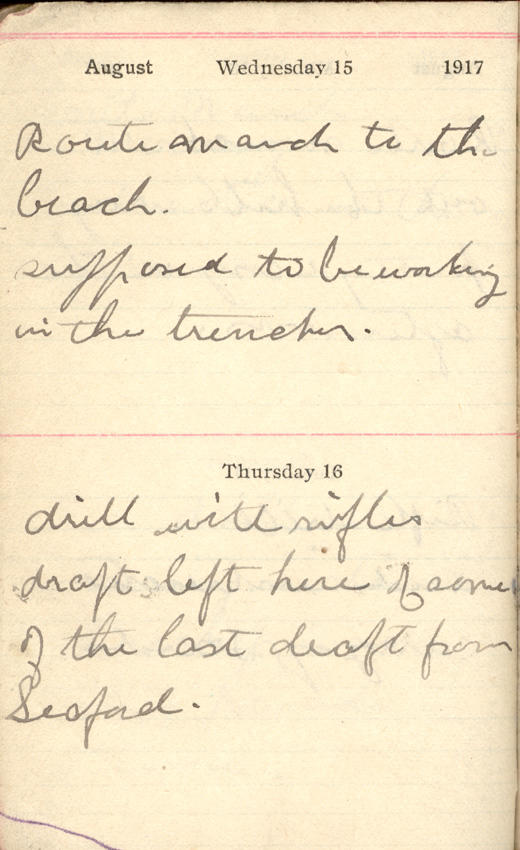 August Wednesday 15 1917
Route march to the
beach.
supposed to be working
in the trenches.
Thursday 16
drill with rifles
draft left here of some
of the last draft from
Seaford.